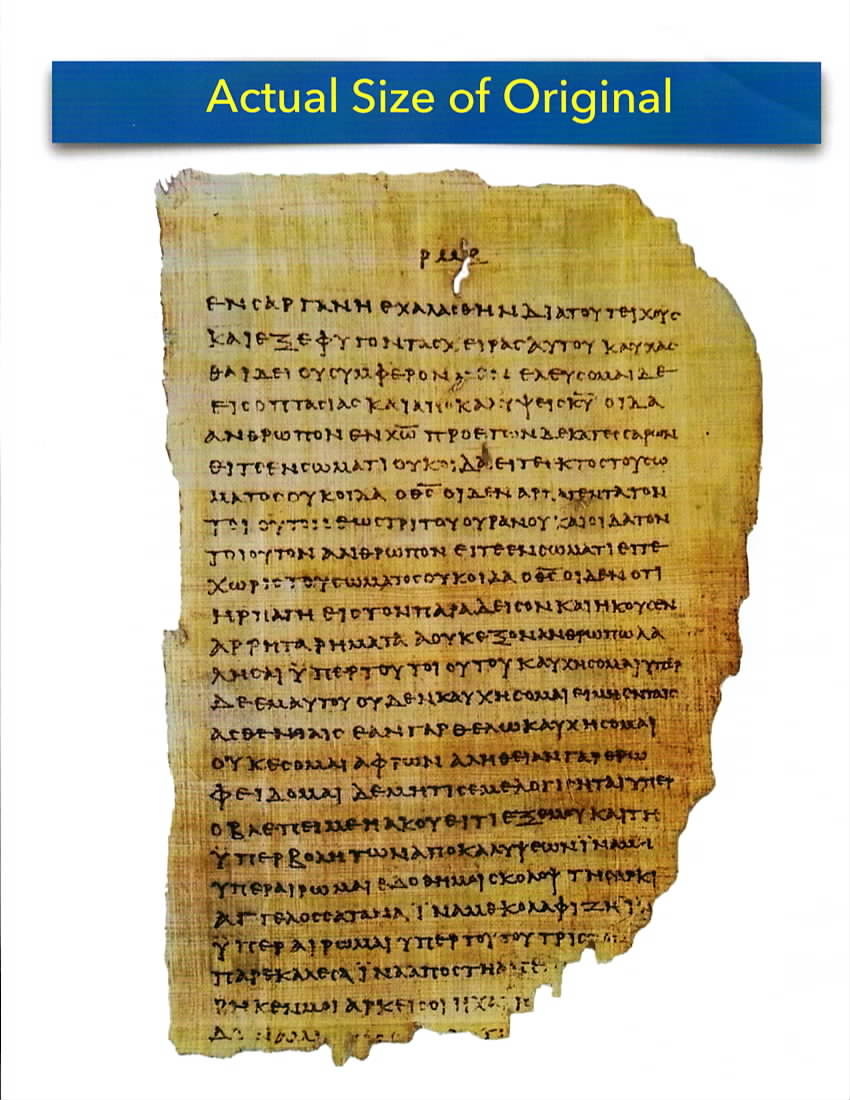 Actual Size of Original
ΕΝ ΣΑΡΓΑΝΗ ΕΧΑΛΑΣΘΗΝ ΔΙΑ ΤΟΥ ΤΕΙΧΟΥΣ
ΚΑΙ ΕΞΕΦΥΓΟΝ ΤΑΣ ΧΕΙΡΑΣ ΑΥΤΟΥ ΚΑΥΧΑΣ
ΘΑΙ ΔΕΙ ΟΥ ΣΥΜΦΕΡΟΝ ΕΛΕΥΣΟΜΑΙ ΔΕ
ΕΙΣ ΟΠΤΑΣΙΑΣ ΚΑΙ ΚΥ ΟΙΔΑ
ΑΝΘΡΩΠΟΝ ΕΝ ΧΩ ΠΡΟ ΕΤΩΝ ΔΕΚΑΤΕΣΣΑΡΩΝ
ΕΙΤΕ ΕΝ ΣΩΜΑΤΙ ΟΥΚ ΟΙΔΑ ΕΙΤΕ ΕΚΤΟΣ ΤΟΥ ΣΩ
ΜΑΤΟΣ ΟΥΚ ΟΙΔΑ Ο ΘΣ ΟΙΔΕΝ ΑΡΠΑΓΕΝΤΑ ΤΟΝ
ΕΩΣ ΤΡΙΤΟΥ ΟΥΡΑΝΟΥ ΚΑΙ ΟΙΔΑ ΤΟΝ
ΤΟΙΟΥΤΟΝ ΑΝΘΡΩΠΟΝ ΕΙΤΕ ΕΝ ΣΩΜΑΤΙ ΕΙΤΕ
ΧΩΡΙΣ ΤΟΥ ΣΩΜΑΤΟΣ ΟΥΚ ΟΙΔΑ Ο ΘΣ ΟΙΔΕΝ ΟΤΙ
ΗΡΠΑΓΗ ΕΙΣ ΤΟΝ ΠΑΡΑΔΕΙΣΟΝ ΚΑΙ ΗΚΟΥΣΕΝ
ΑΡΡΗΤΑ ΡΗΜΑΤΑ Α ΟΥΚ ΕΞΟΝ ΑΝΘΡΩΠΩ ΛΑ
ΛΗΣΑΙ ΫΠΕΡ ΤΟΥ ΤΟΙΟΥΤΟΥ ΚΑΥΧΗΣΟΜΑΙ ΥΠΕΡ
ΔΕ ΕΜΑΥΤΟΥ ΟΥΔΕΝ ΚΑΥΧΗΣΟΜΑΙ ΕΙ ΜΗ ΕΝ ΤΑΙΣ
ΑΣΘΕΝΕΙΑΙΣ ΕΑΝ ΓΑΡ ΘΕΛΩ ΚΑΥΧΗΣΟΜΑΙ
ΟΥΚ ΕΣΟΜΑΙ ΑΦΡΩΝ ΑΛΗΘΕΙΑΝ ΓΑΡ ΕΡΩ
ΦΕΙΔΟΜΑΙ ΔΕ ΜΗ ΤΙΣ ΕΜΕ ΛΟΓΙΣΗΤΑΙ ΥΠΕΡ
Ο ΒΛΕΠΕΙ ΜΕ Η ΑΚΟΥΕΙ ΤΙ ΕΞ ΕΜΟΥ ΚΑΙ ΤΗ
ΫΠΕΡΒΟΛΗ ΤΩΝ ΑΠΟΚΑΛΥΨΕΩΝ ΪΝΑ ΜΗ
ΥΠΕΡΑΙΡΩΜΑΙ ΕΔΟΘΗ ΜΟΙ ΣΚΟΛΟΨ ΤΗ ΣΑΡΚΙ
ΑΓΓΕΛΟΣ ΣΑΤΑΝΑ ΪΝΑ ΜΕ ΚΟΛΑΦΙΖΗ
ΫΠΕΡΑΙΡΩΜΑΙ ΥΠΕΡ ΤΟΥΤΟΥ ΤΡΙΣ
ΠΑΡΕΚΑΛΕΣΑ ΪΝΑ ΑΠΟΣΤΗ
ΚΕΝ ΜΟΙ ΑΡΚΕΙ ΣΟΙ Η ΧΑ